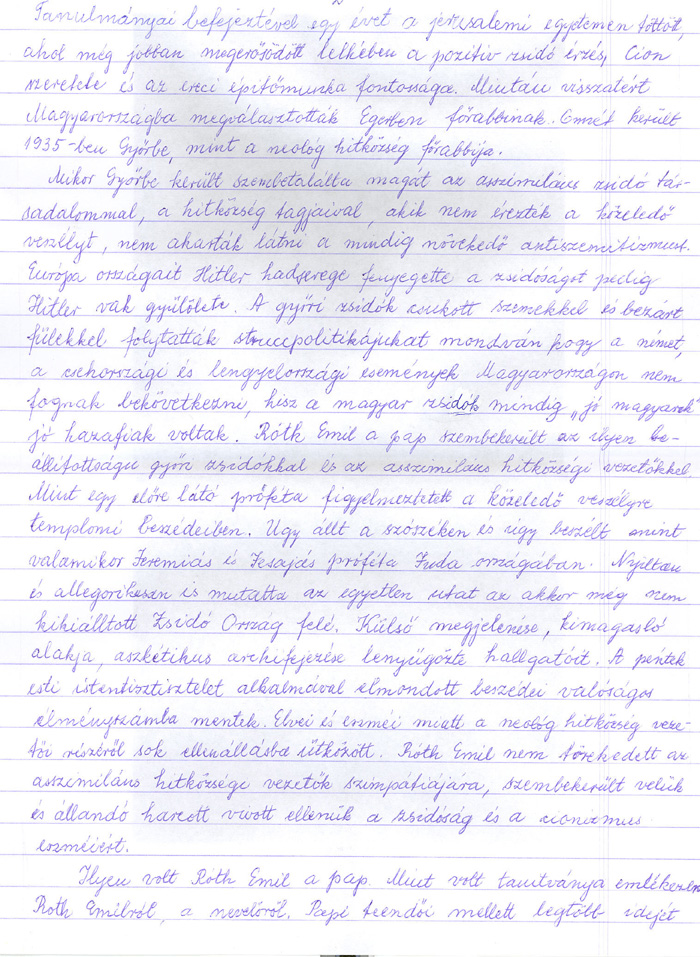 Tanulmányai befejeztével egy évet a jeruzsalemi egyetemen töltött,
ahol még jobban megerősödött lelkében a pozitiv zsidó érzés, Cion
szeretete és az ereci épitőmunka fontossága. Miután visszatért
Magyarországba megválasztották Egerben főrabbinak. Onnét került
1935-ben Győrbe, mint a neológ hitközség főrabbija.
Mikor Győrbe került szembetalálta magát az asszimiláns zsidó tár-
sadalommal, a hitközség tagjaival, akik nem érezték a közeledő
veszélyt, nem akarták látni a mindig növekedő antiszemitizmust.
Európa országait Hitler hadserege fenyegette a zsidóságot pedig
Hitler vak gyülölete. A győri zsidók csukott szemekkel és bezárt
fülekkel folytatták struccpolitikájukat mondván hogy a német,
a csehországi és lengyelországi események Magyarországon nem
fognak bekövetkezni, hisz a magyar zsidók mindig „jó magyarok"
jó hazafiak voltak. Róth Emil a pap szembekerült az ilyen be-
állitottságu győri zsidókkal és az asszimiláns hitközségi vezetőkkel.
Mint egy előre látó próféta figyelmeztetett a közeledő veszélyre
templomi beszédeiben. Ugy állt a szószéken és úgy beszélt mint
valamikor Jeremiás és Jesajás próféta Juda országában. Nyiltan
és allegorikusan is mutatta az egyetlen utat az akkor még nem
kikiálltott Zsidó Ország felé. Külső megjelenése, kimagasló
alakja, aszkétikus arckifejezése lenyűgözte hallgatóit. A péntek
esti istentisztistelet alkalmával elmondott beszédei valóságos
élményszámba mentek. Elvei és eszméi miatt a neológ hitközség veze-
tői részéről sok ellenállásba ütközött. Róth Emil nem törekedett az
asszimiláns hitközségi vezetők szimpátiájára, szembekerült velük
és állandó harcot vivott ellenük a zsidóság és a cionizmus
eszméiért.
Ilyen volt Róth Emil a pap. Mint volt tanitványa emlékezem
Róth Emilról, a nevelőről. Papi teendői mellett legtöbb idejét